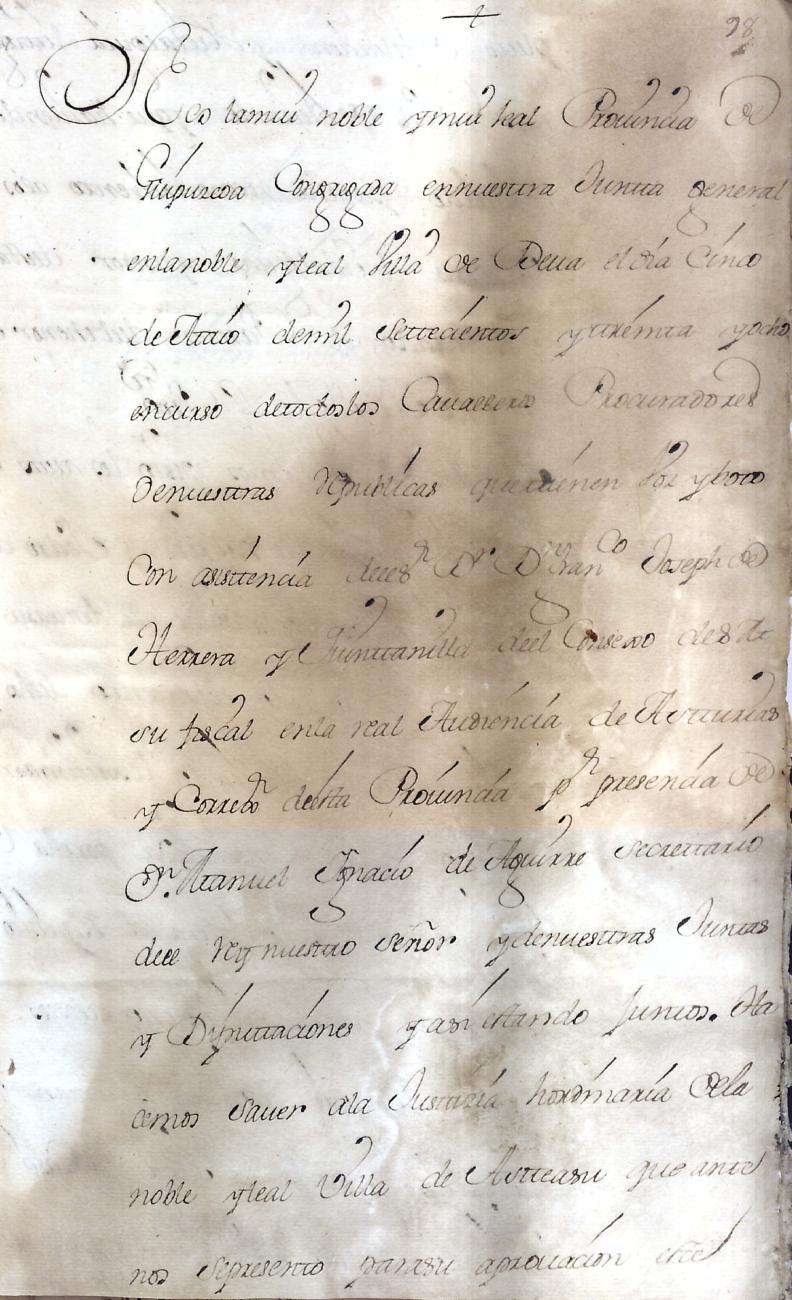 +
98
Nos lamui noble ymui leal Prouincia de
Guipuzcoa Congregada ennuestra Juntta general
enlanoble yleal Villa de Deua el dia Cinco
de Maio demil Settecientos yttreinta yocho
encurso detodoslos Caualleros Procuradores
denuestras Republicas quetienen Voz yboto
Con asisttencia deel Sr Dr Dn Franco Joseph de
Herrera y Quinttanilla deel Consexo de S M
su fiscal enla real Audiencia de Astturias
y Corregr deesta Prouincia pr presencia de
Dn Manuel Ygnacio de Aguirre Secrettario
deel Rey nuestro Señor ydenuesttras Junttas
y Diputtaciones yasi estando Juntos. Ha
cemos Sauer ala Justizia hordinaria dela
noble yleal Villa de Astteasu que ante
nos sepresento parasu aprouacion este